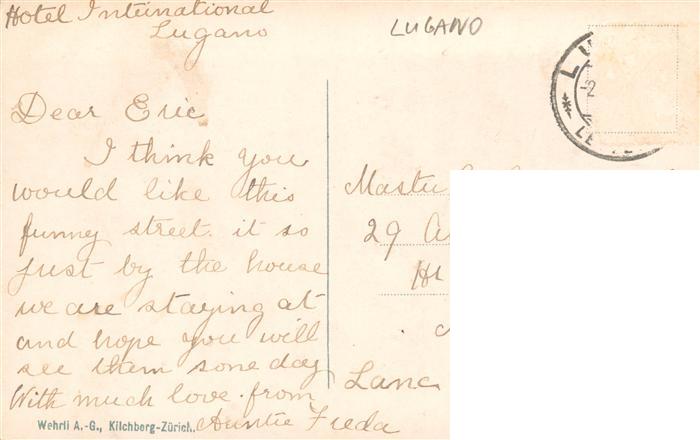 Hotel International
Lugano
LUGANO
Dear Eric
I think you
would like this
funny street. it so
just by the house
we are staying at
and hope you will
see them some day
With much love. from
Auntie Freda
Wehrli A.-G., Kilchberg-Zürich.
29
Lanc